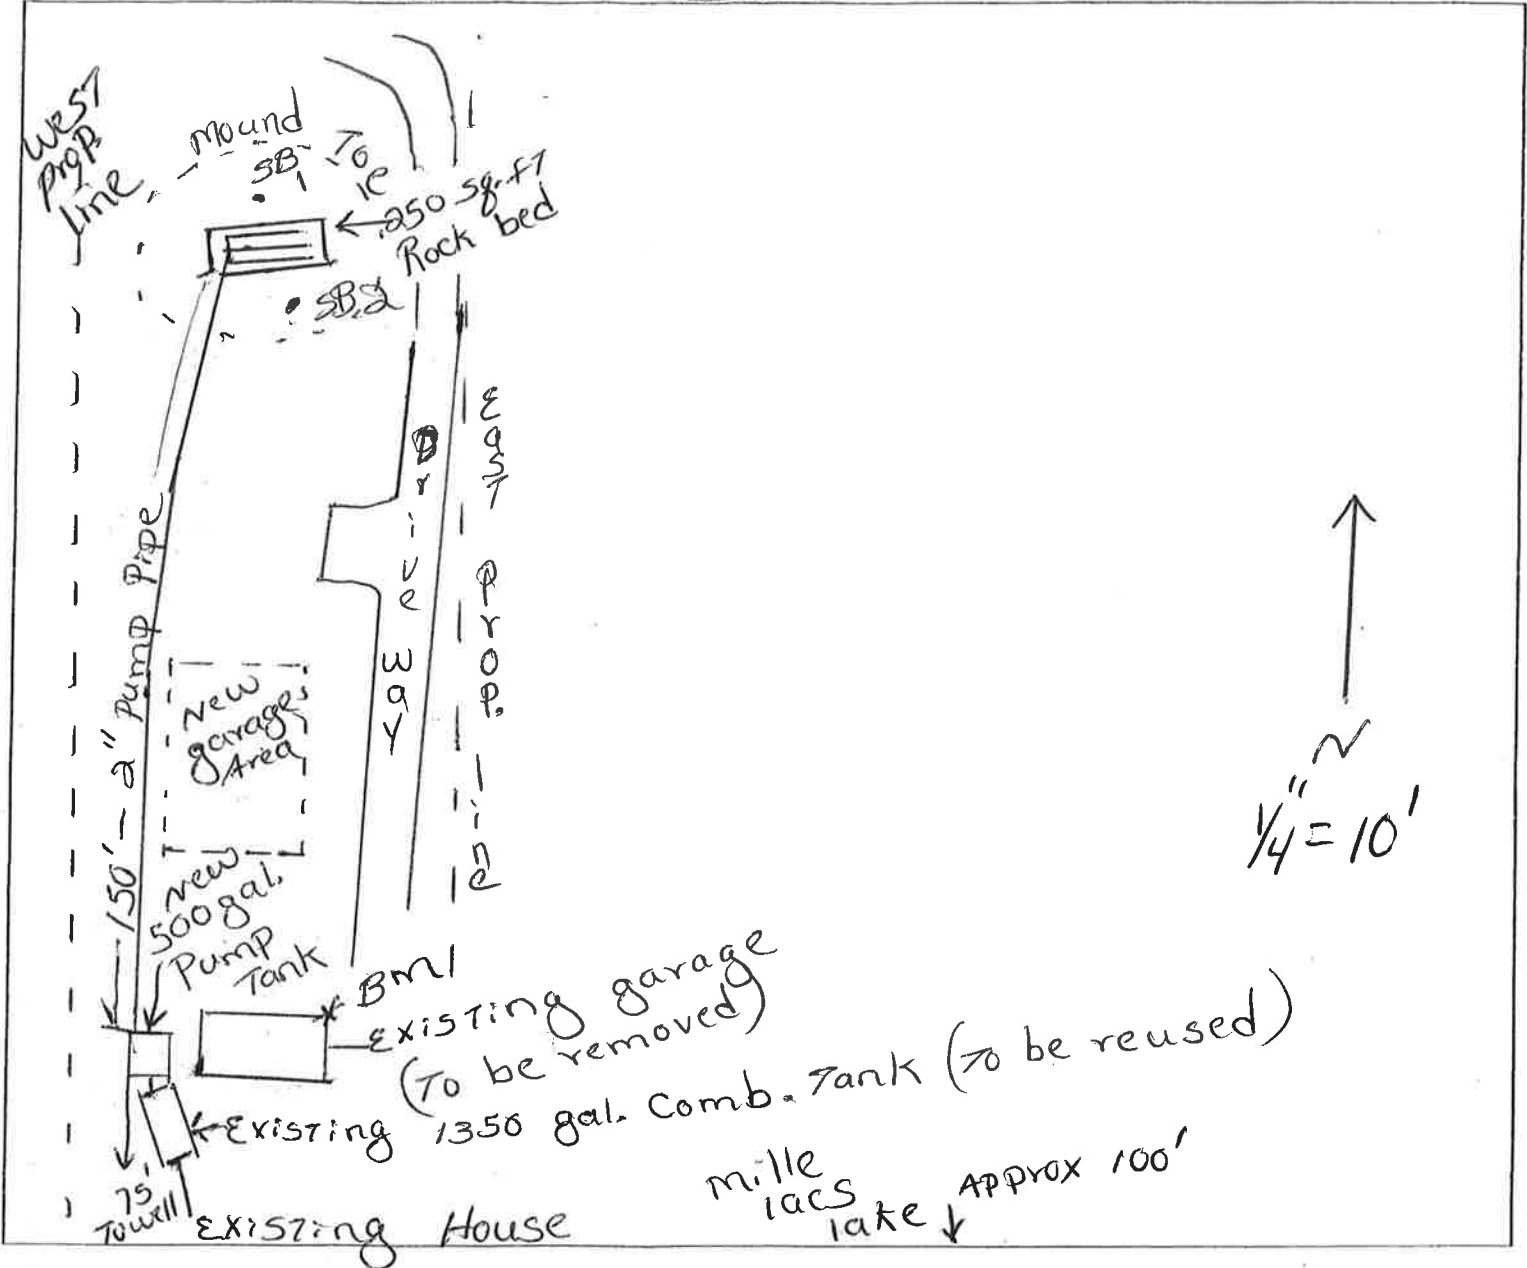 West
Prop.
line
Mound
Toe
SB
1
250 sq. ft
Rock bed
SB.2
Drive way
East Prop. line
150' - 2" Pump Pipe
New
garage
Area
New
500 gal.
Pump
Tank
BM1
Existing garage
(To be removed)
Existing 1350 gal. Comb. Tank (To be reused)
75'
To well
Existing House
Mille
lacs
lake
Approx 100'
N
1/4" = 10'